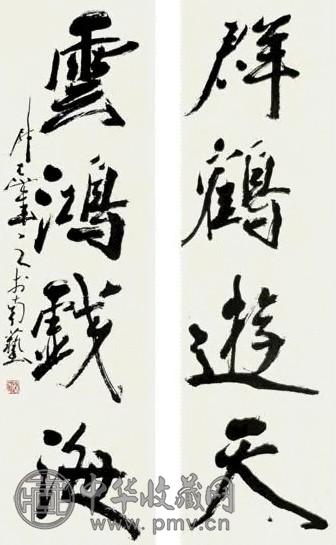 群鶴遊天
雲鴻戲海
於南藝
中华收藏网
www.pmv.cn